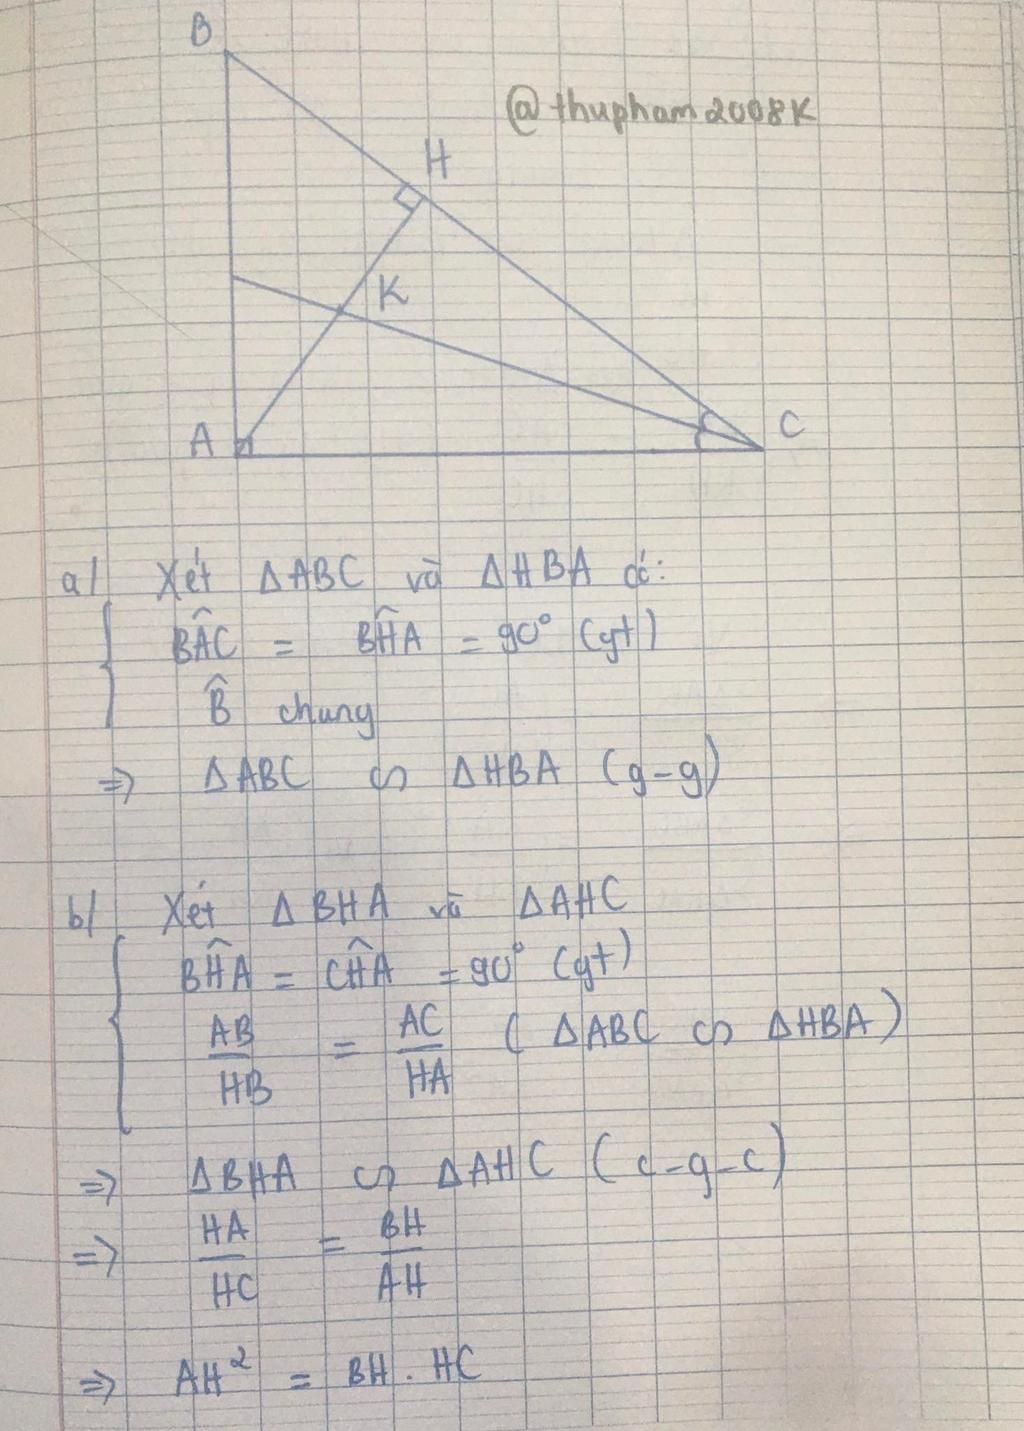 B
@thupham2008k
H
K
A
C
a/ Xét ΔABC và ΔHBA có:
BÂC = BĤA = 90° (gt)
B̂ chung
=> ΔABC ∽ ΔHBA (g-g)
b/ Xét ΔBHA và ΔAHC
BĤA = CĤA = 90° (gt)
AB/HB = AC/HA (ΔABC ∽ ΔHBA)
=> ΔBHA ∽ ΔAHC (c-g-c)
=> HA/HC = BH/AH
=> AH² = BH . HC